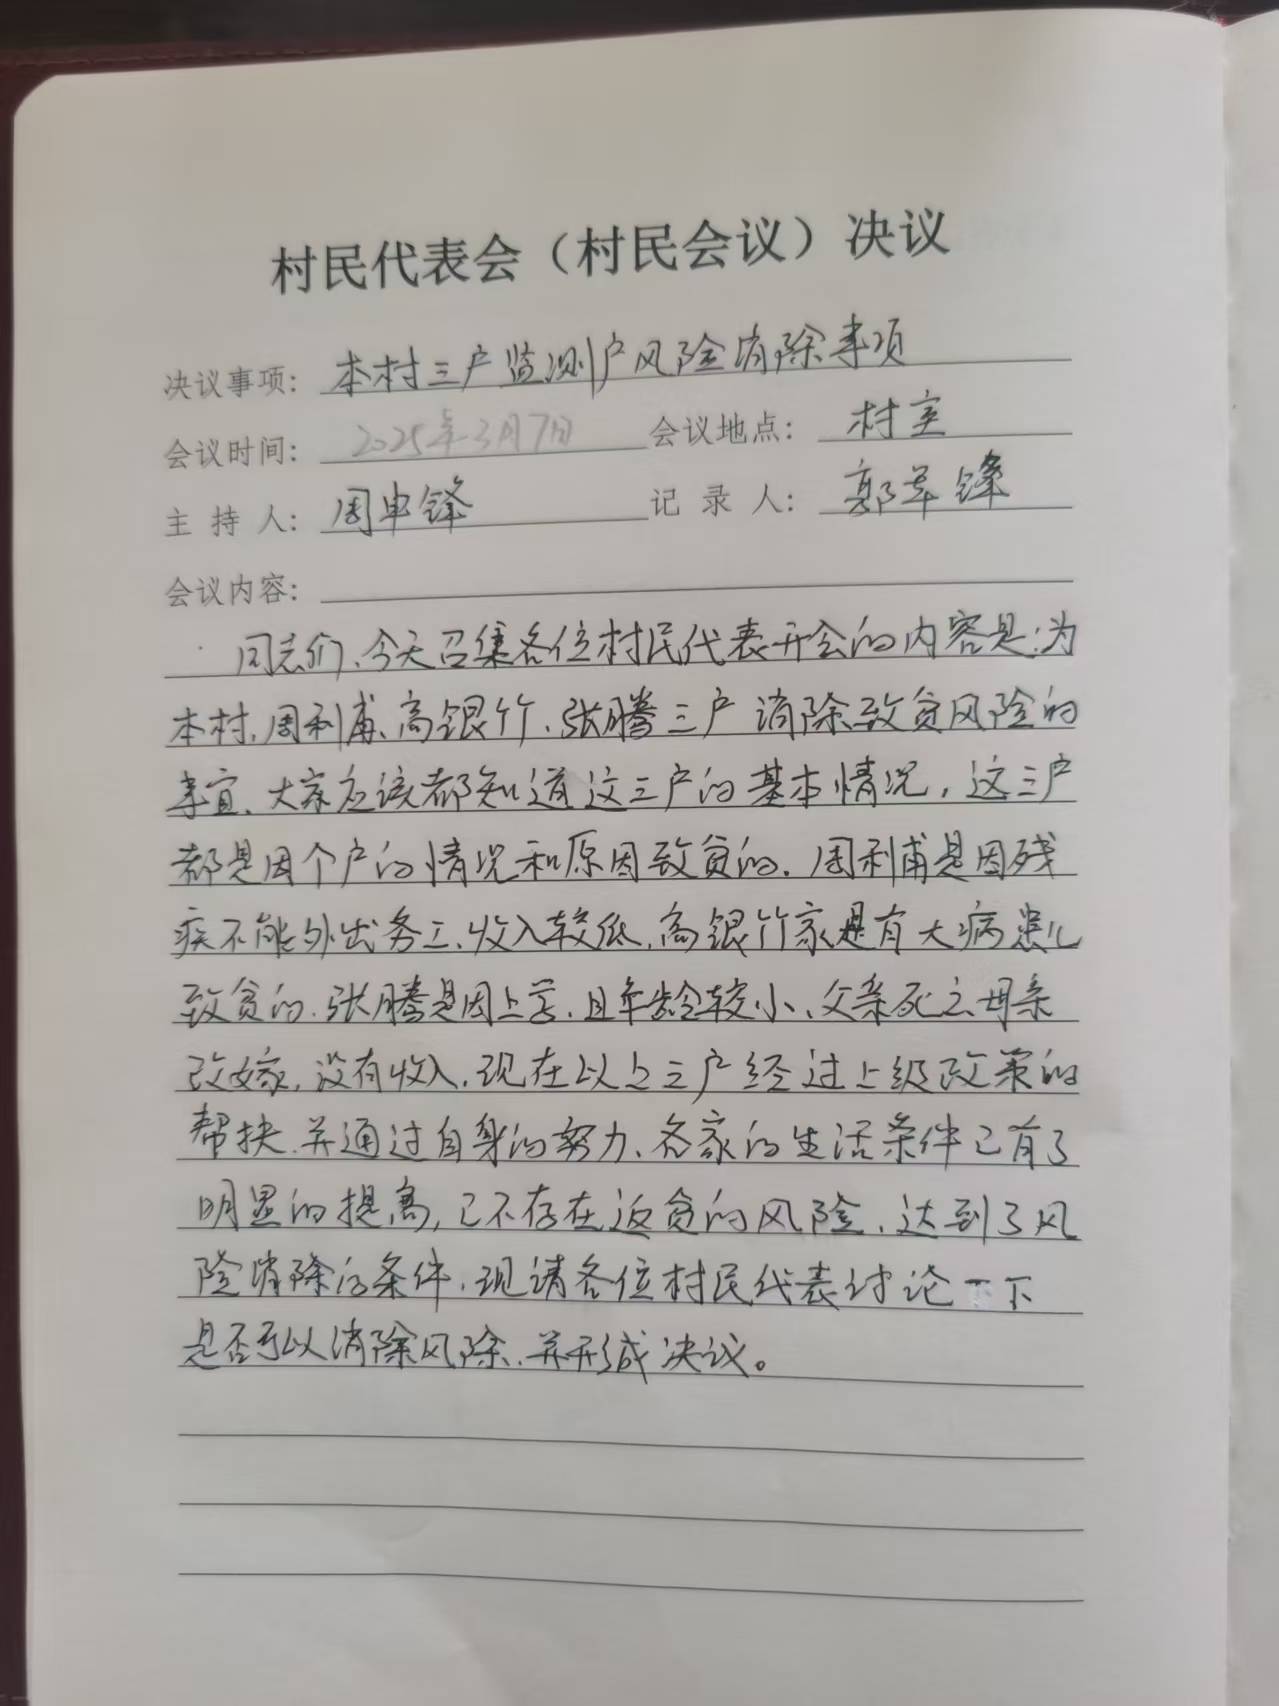 村民代表会（村民会议）决议
决议事项： 本村三户监测户风险消除事项
会议时间： 2025年3月7日 会议地点： 村室
主持人： 周申锋 记录人： 郭军锋
会议内容：
同志们、今天召集各位村民代表开会的内容是：为
本村、周利甫、高银竹、张腾三户消除致贫风险的
事宜、大家应该都知道这三户的基本情况，这三户
都是因个户的情况和原因致贫的．周利甫是因残
疾不能外出务工、收入较低，高银竹家是有大病患儿
致贫的．张腾是因上学、且年龄较小、父亲死亡母亲
改嫁，没有收入．现在以上三户经过上级政策的
帮扶．并通过自身的努力、各家的生活条件已有了
明显的提高，已不存在返贫的风险．达到了风
险消除的条件．现请各位村民代表讨论一下
是否可以消除风险．并形成决议。